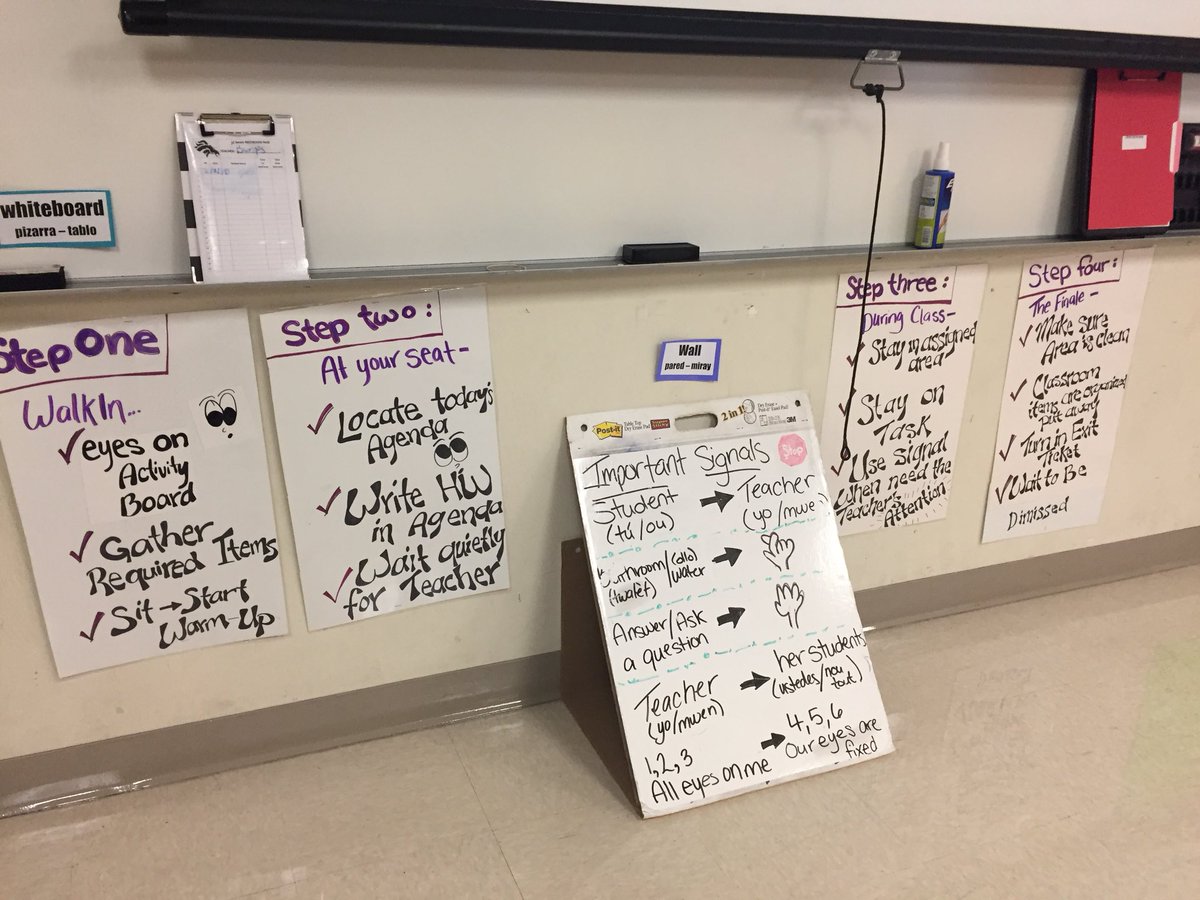 whiteboard
pizarra – tablo
Step One
Walk In...
eyes on
Activity
Board
Gather
Required Items
Sit → Start
Warm-Up
Step two:
At your seat-
Locate today's
Agenda
Write HW
in Agenda
Wait quietly
for Teacher
Wall
pared – miray
Post-it
2 in 1
3M
Important Signals
Stop
Student → Teacher
(tú/ou) (yo/mwen)
(twalèt) water
Answer/Ask
a question
Teacher → her students
(yo/mwen) (ustedes/nou
tout)
1, 2, 3 → 4, 5, 6
All eyes on me Our eyes are
fixed
Step three:
During Class-
Stay in assigned
area
Stay on
Task
Use Signal
When need the
Teacher's
Attention
Step four:
The Finale -
Make sure
Area is clean
Classroom
items are organized
put away
Turn in Exit
Ticket
Wait to Be
Dimissed